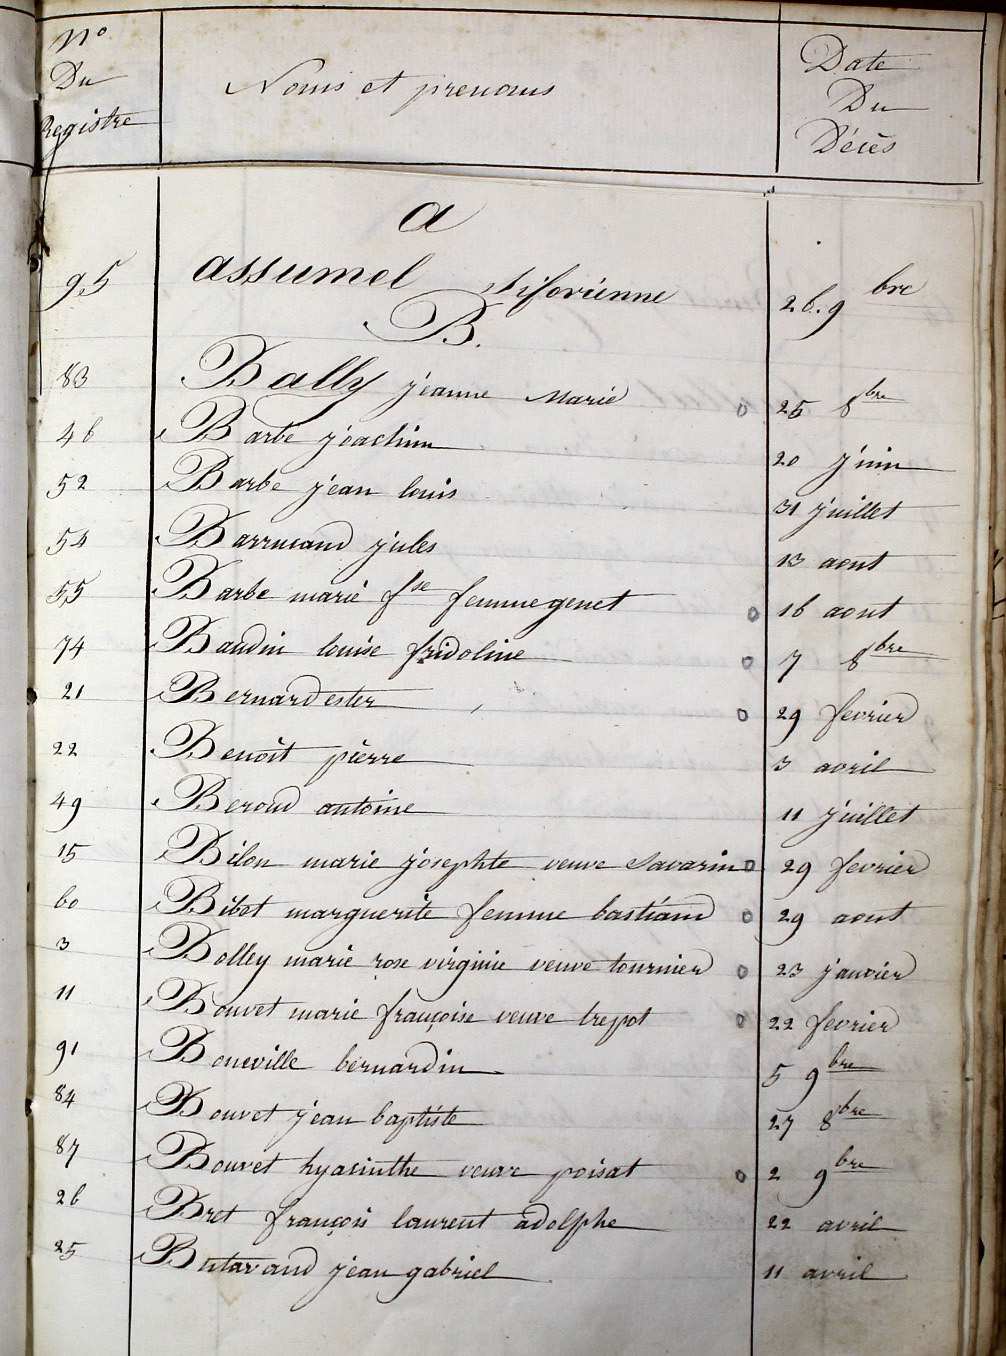 N°
Du
Registre
Noms et prenoms
Date
Du
Décès
a
95 assumel siforienne 26. 9bre
B.
83 Bally jeanne Marie 25 8bre
46 Barbe joachim 20 juin
52 Barbe jean louis 31 juillet
54 Barrucand jules 13 aout
55 Barbe marie fse femme genet 16 aout
74 Baudin louise fridoline 7 8bre
21 Bernard ester 29 fevrier
22 Benoit pierre 3 avril
49 Beroud antoine 11 juillet
15 Bilon marie josephte veuve Savarin 29 fevrier
60 Bibet marguerite femme bastiand 29 aout
3 Bolley marie rose virginie veuve tournier 23 janvier
11 Bouvet marie françoise veuve trepot 22 fevrier
91 Boneville bernardin 5 9bre
84 Bouvet jean baptiste 27 8bre
87 Bouvet hyacinthe veuve poisat 2 9bre
26 Bret françois laurent adolphe 22 avril
25 Butavand jean gabriel 11 avril